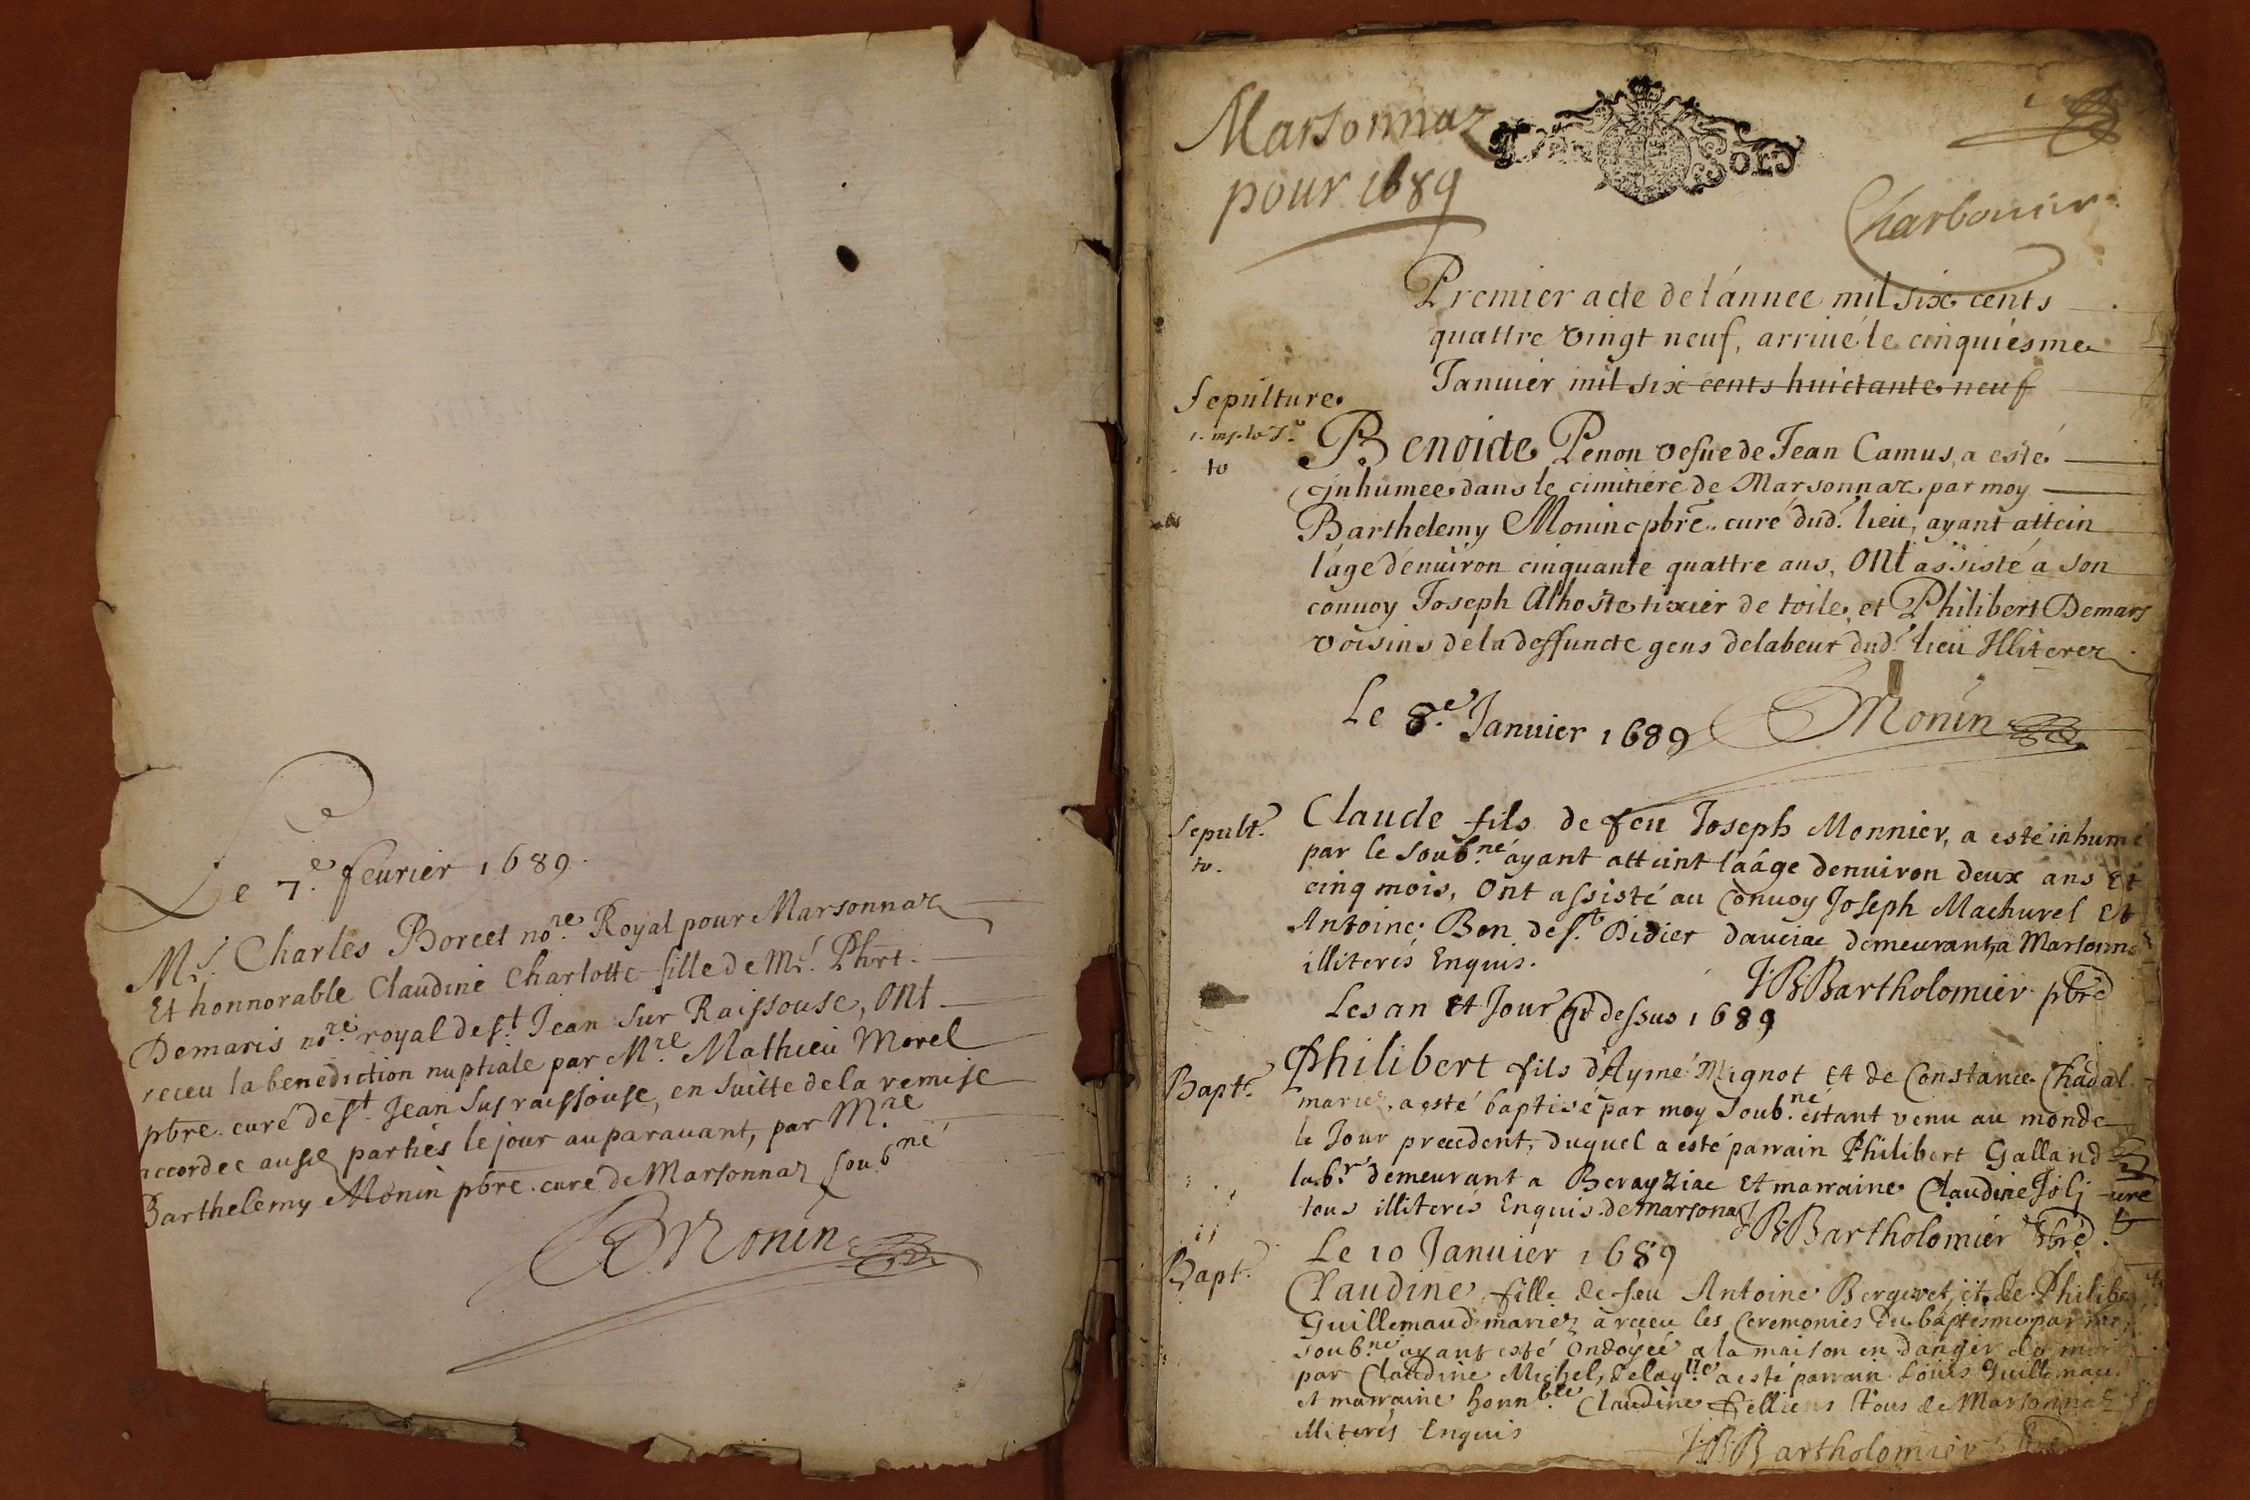 Le 7.e feurier 1689.
Mr. Charles Borcet no.re Royal pour Marsonnaz
Et honnorable Claudine Charlotte fille de Mr. Phrt.
Demaris no.re royal de st. Jean sur Raissouse, ont
receu la benediction nuptiale par Mre. Mathieu Morel
pbre. curé de st. Jean sus raissouse, en suitte de la remise
accordee ausd. parties le jour auparauant, par Mre
Barthelemy Monin pbre. curé de Marsonnaz soub.né
BMonin
Marsonnaz
pour 1689
Charbonier
Premier acte de l'année mil six cents
quattre vingt neuf, arriué le cinquiésme
Januier mil six cents huictante neuf
Sepulture
to
Benoicte Penon vefue de Jean Camus, a esté
inhumee dans le cimitiére de Marsonnaz, par moy
Barthelemy Monin pbre. curé dud. lieu, ayant attein
l'áge d'enuiron cinquante quattre ans, ont assisté a son
conuoy Joseph Alhoste tixier de toile, et Philibert Demars
voisins de la deffuncte gens de labeur dud. lieu Illiterez
BMonin
Le 8.e Januier 1689
Sepult.
to.
Claude fils de feu Joseph Monnier, a esté inhumé
par le soub.né ayant atteint l'aáge denuiron deux ans Et
cinq mois, Ont assisté au Conuoy Joseph Machurel Et
Antoine Bon de st. Didier dauciac demeurant a Marsonna
illiterés Enquis.
JBBartholomier pbre
Les an Et Jour que dessus 1689
Bapt.
Philibert fils d'Aymé Mignot Et de Constance Chadal
mariez, a esté baptisé par moy soub.né estant venu au monde
le Jour precedent, duquel a esté parrain Philibert Galland
lab.r demeurant a Berayziac Et marraine Claudine Joly
tous illiterés Enquis de marsona
JBBartholomier pbre.
Le 10 Januier 1689
Bapt.
Claudine fille de feu Antoine Bergeret, et de Philibe
Guillemaud mariez a receu les Ceremonies du baptesme par
soub.né ayant esté Ondoyéé a la maison en danger de mor
par Claudine Michel, de laq.lle a esté parrain Louis Guillemau
et marraine honn.ble Claudine tous de Marsonnaz
illiterés Enquis
JBBartholomier